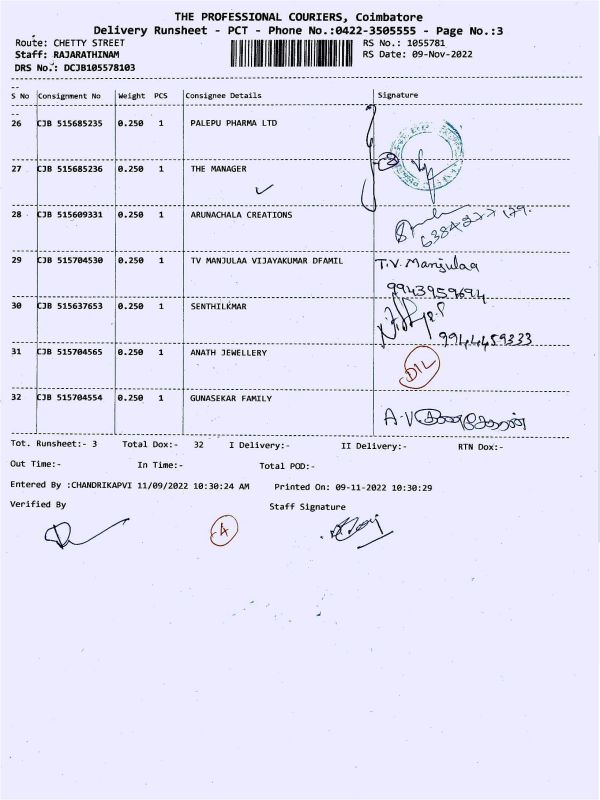 THE PROFESSIONAL COURIERS, Coimbatore
Delivery Runsheet - PCT - Phone No.:0422-3505555 - Page No.:3
Route: CHETTY STREET RS No.: 1055781
Staff: RAJARATHINAM RS Date: 09-Nov-2022
DRS No.: DCJB105578103
S No Consignment No Weight PCS Consignee Details Signature
26 CJB 515685235 0.250 1 PALEPU PHARMA LTD
27 CJB 515685236 0.250 1 THE MANAGER
28 CJB 515609331 0.250 1 ARUNACHALA CREATIONS
29 CJB 515704530 0.250 1 TV MANJULAA VIJAYAKUMAR DFAMIL T.V. Manjulaa
9943959694
30 CJB 515637653 0.250 1 SENTHILKMAR
9944459333
31 CJB 515704565 0.250 1 ANATH JEWELLERY D/L
32 CJB 515704554 0.250 1 GUNASEKAR FAMILY A.V
Tot. Runsheet:- 3 Total Dox:- 32 I Delivery:- II Delivery:- RTN Dox:-
Out Time:- In Time:- Total POD:-
Entered By :CHANDRIKAPVI 11/09/2022 10:30:24 AM Printed On: 09-11-2022 10:30:29
Verified By Staff Signature
A